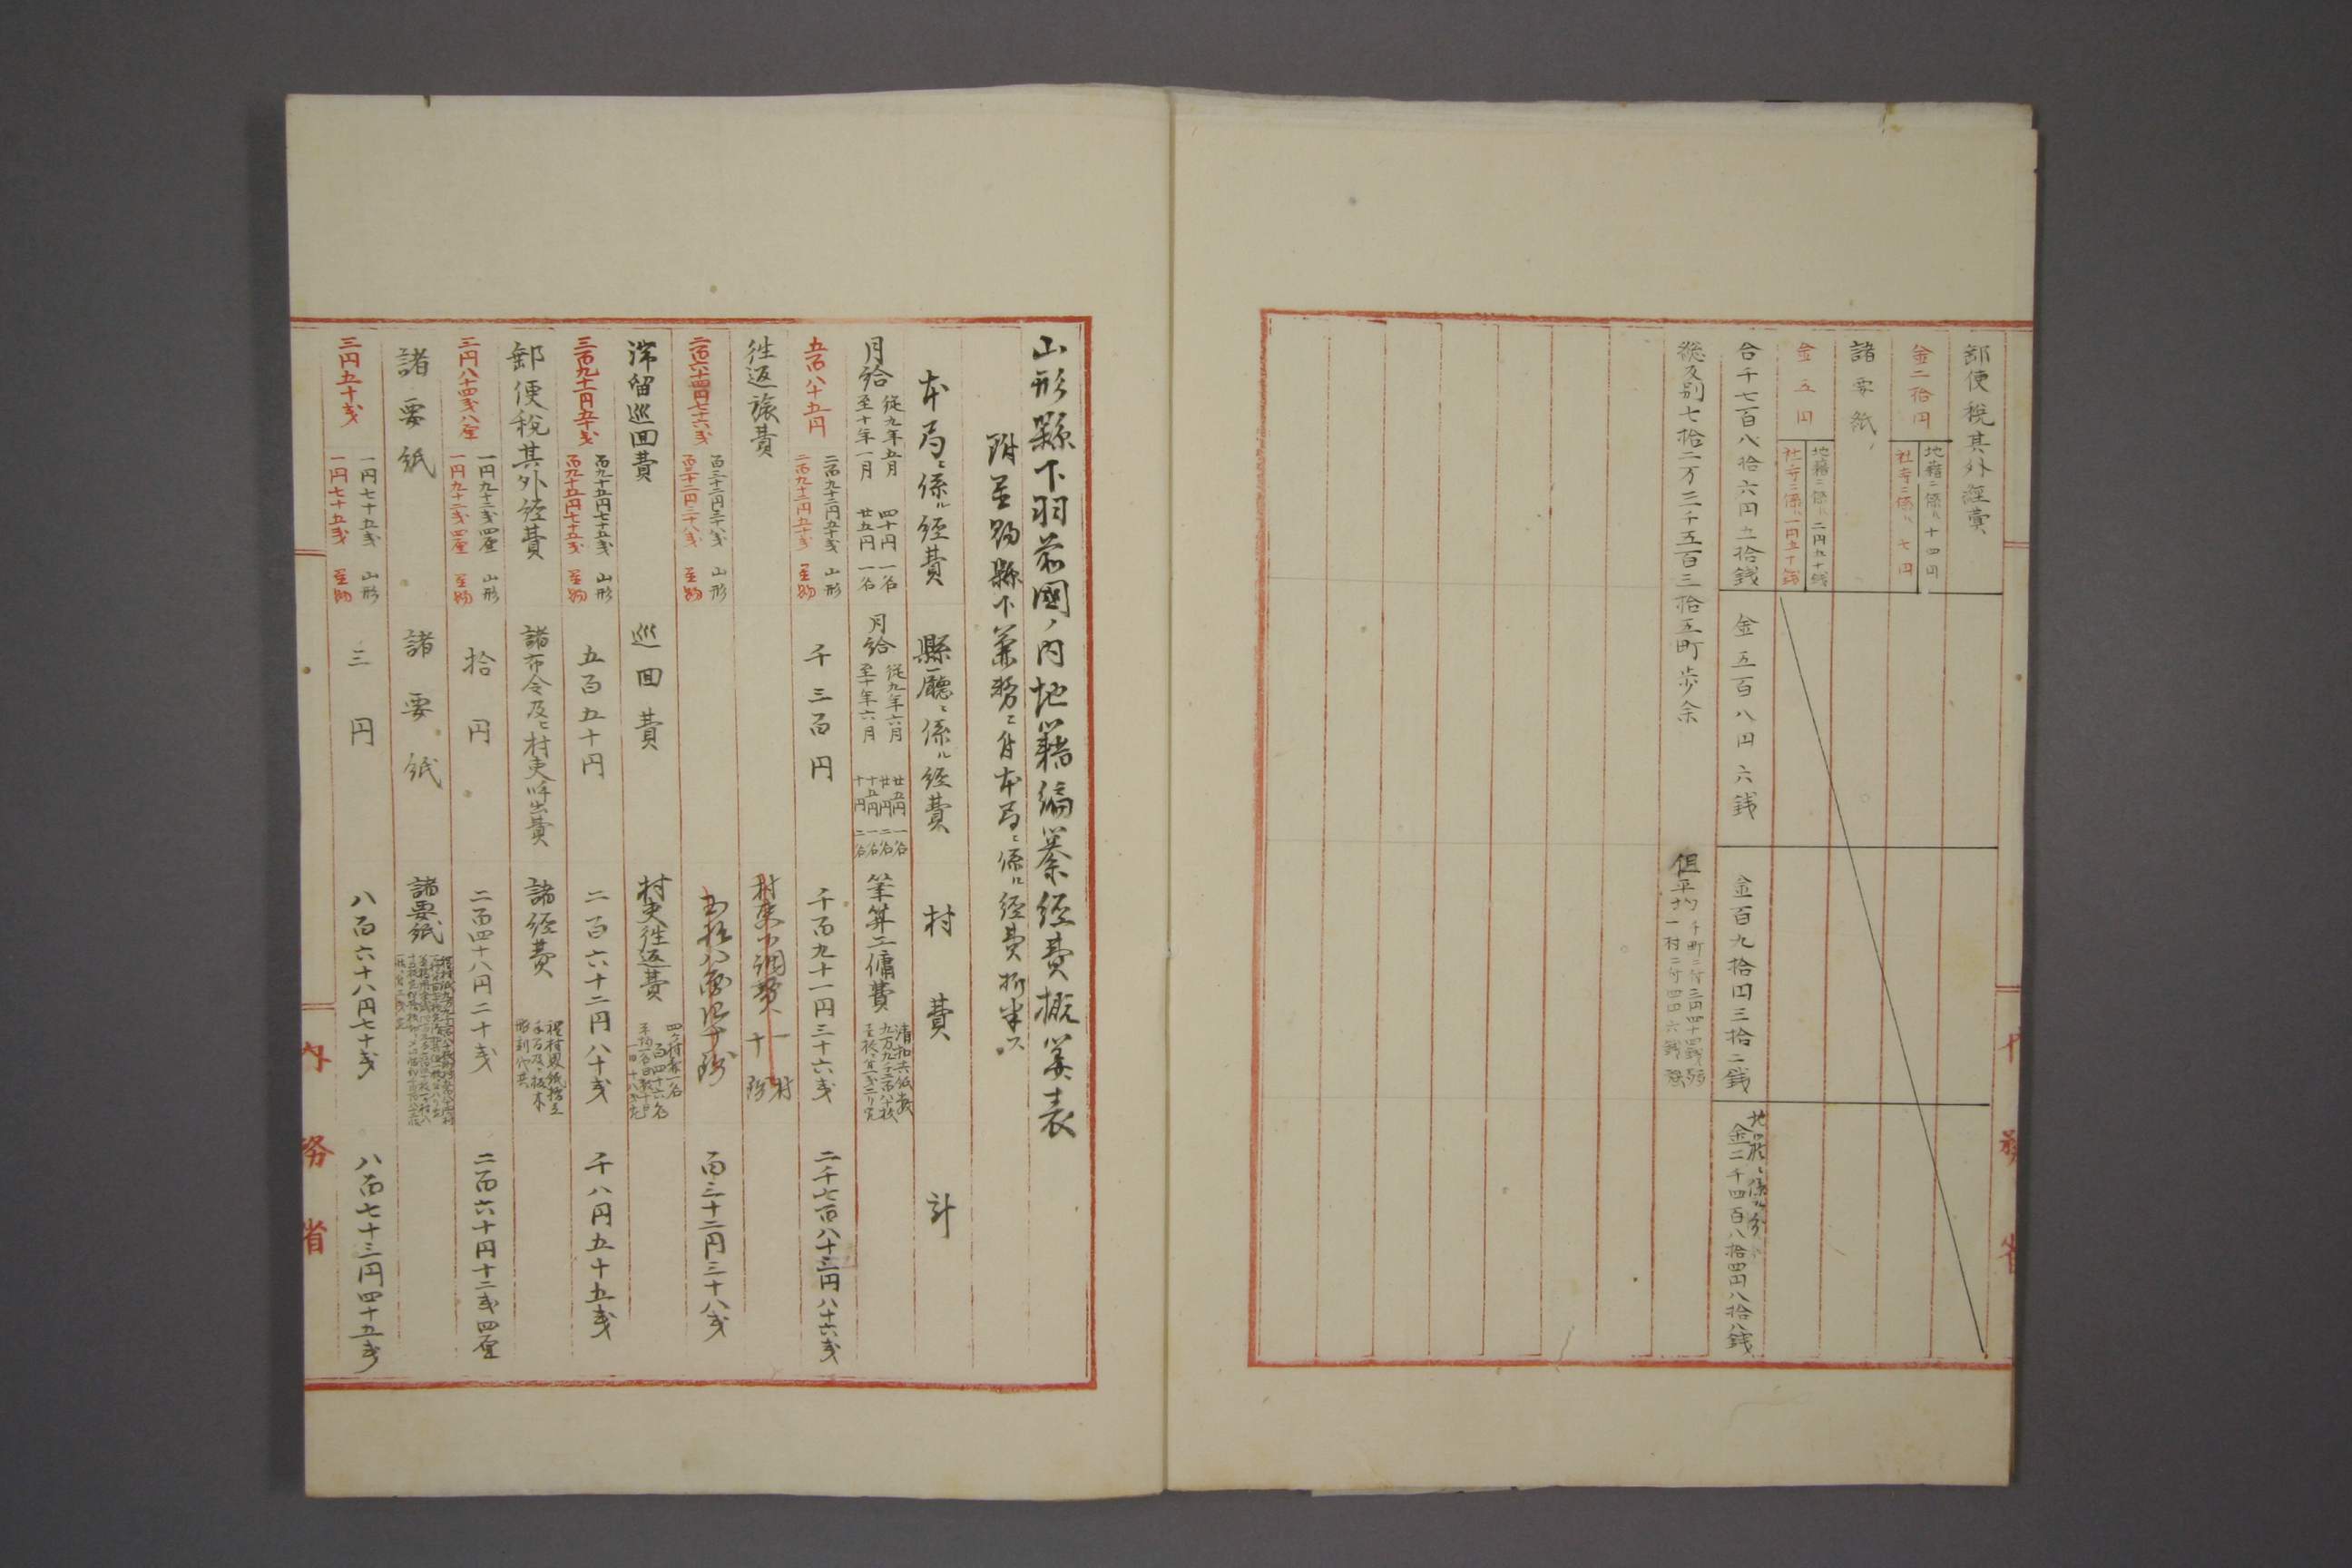 郵便税其外経費
金二拾円
地籍ニ係ル 十四円
社寺ニ係ル 七円
諸要紙
金五円
地籍ニ係ル 二円五十銭
社寺ニ係ル 一円五十銭
合千七百八拾六円二拾銭
金五百八円六銭
金百九拾四円三拾二銭
地籍ニ係ル分
金二千四百八拾四円八拾八銭
総反別七拾二万三千五百三拾五町歩余
但平均
千町ニ付三円四十四銭弱
一村ニ付四円六銭強
内務省
山形縣下羽前國ノ内地籍編纂経費概算表
附置賜縣下兼務ニ付本局ニ係ル経費折半ス
本局ニ係ル経費
縣廳ニ係ル経費
村費
計
月給
従九年五月
至十年一月
四十円 一名
廿五円 一名
月給
従九年六月
至十年六月
廿五円 一名
廿円 二名
十五円 一名
十円 二名
筆算工傭費
五百八十五円
二百九十二円五十戋 山形
二百九十二円五十戋 置賜
千三百円
千百九十一円三十六戋
二千七百八十三円八十六戋
往返旅費
二百六十四円七十六戋
百三十二円三十八戋 山形
百三十二円三十八戋 置賜
百三十二円三十八戋
滞留巡回費
巡回費
村吏往返費
三百九十一円五十戋
百九十五円七十五戋 山形
百九十五円七十五戋 置賜
五百五十円
二百六十二円八十戋
千八円五十五戋
郵便税其外経費
諸布令及ヒ村吏呼出費
諸経費
三円八十四戋八厘
一円九十二戋四厘 山形
一円九十二戋四厘 置賜
拾円
二百四十八円二十戋
二百六十円十二戋四厘
諸要紙
諸要紙
諸要紙
三円五十戋
一円七十五戋 山形
一円七十五戋 置賜
三円
八百六十八円七十戋
八百七十三円四十五戋
内務省